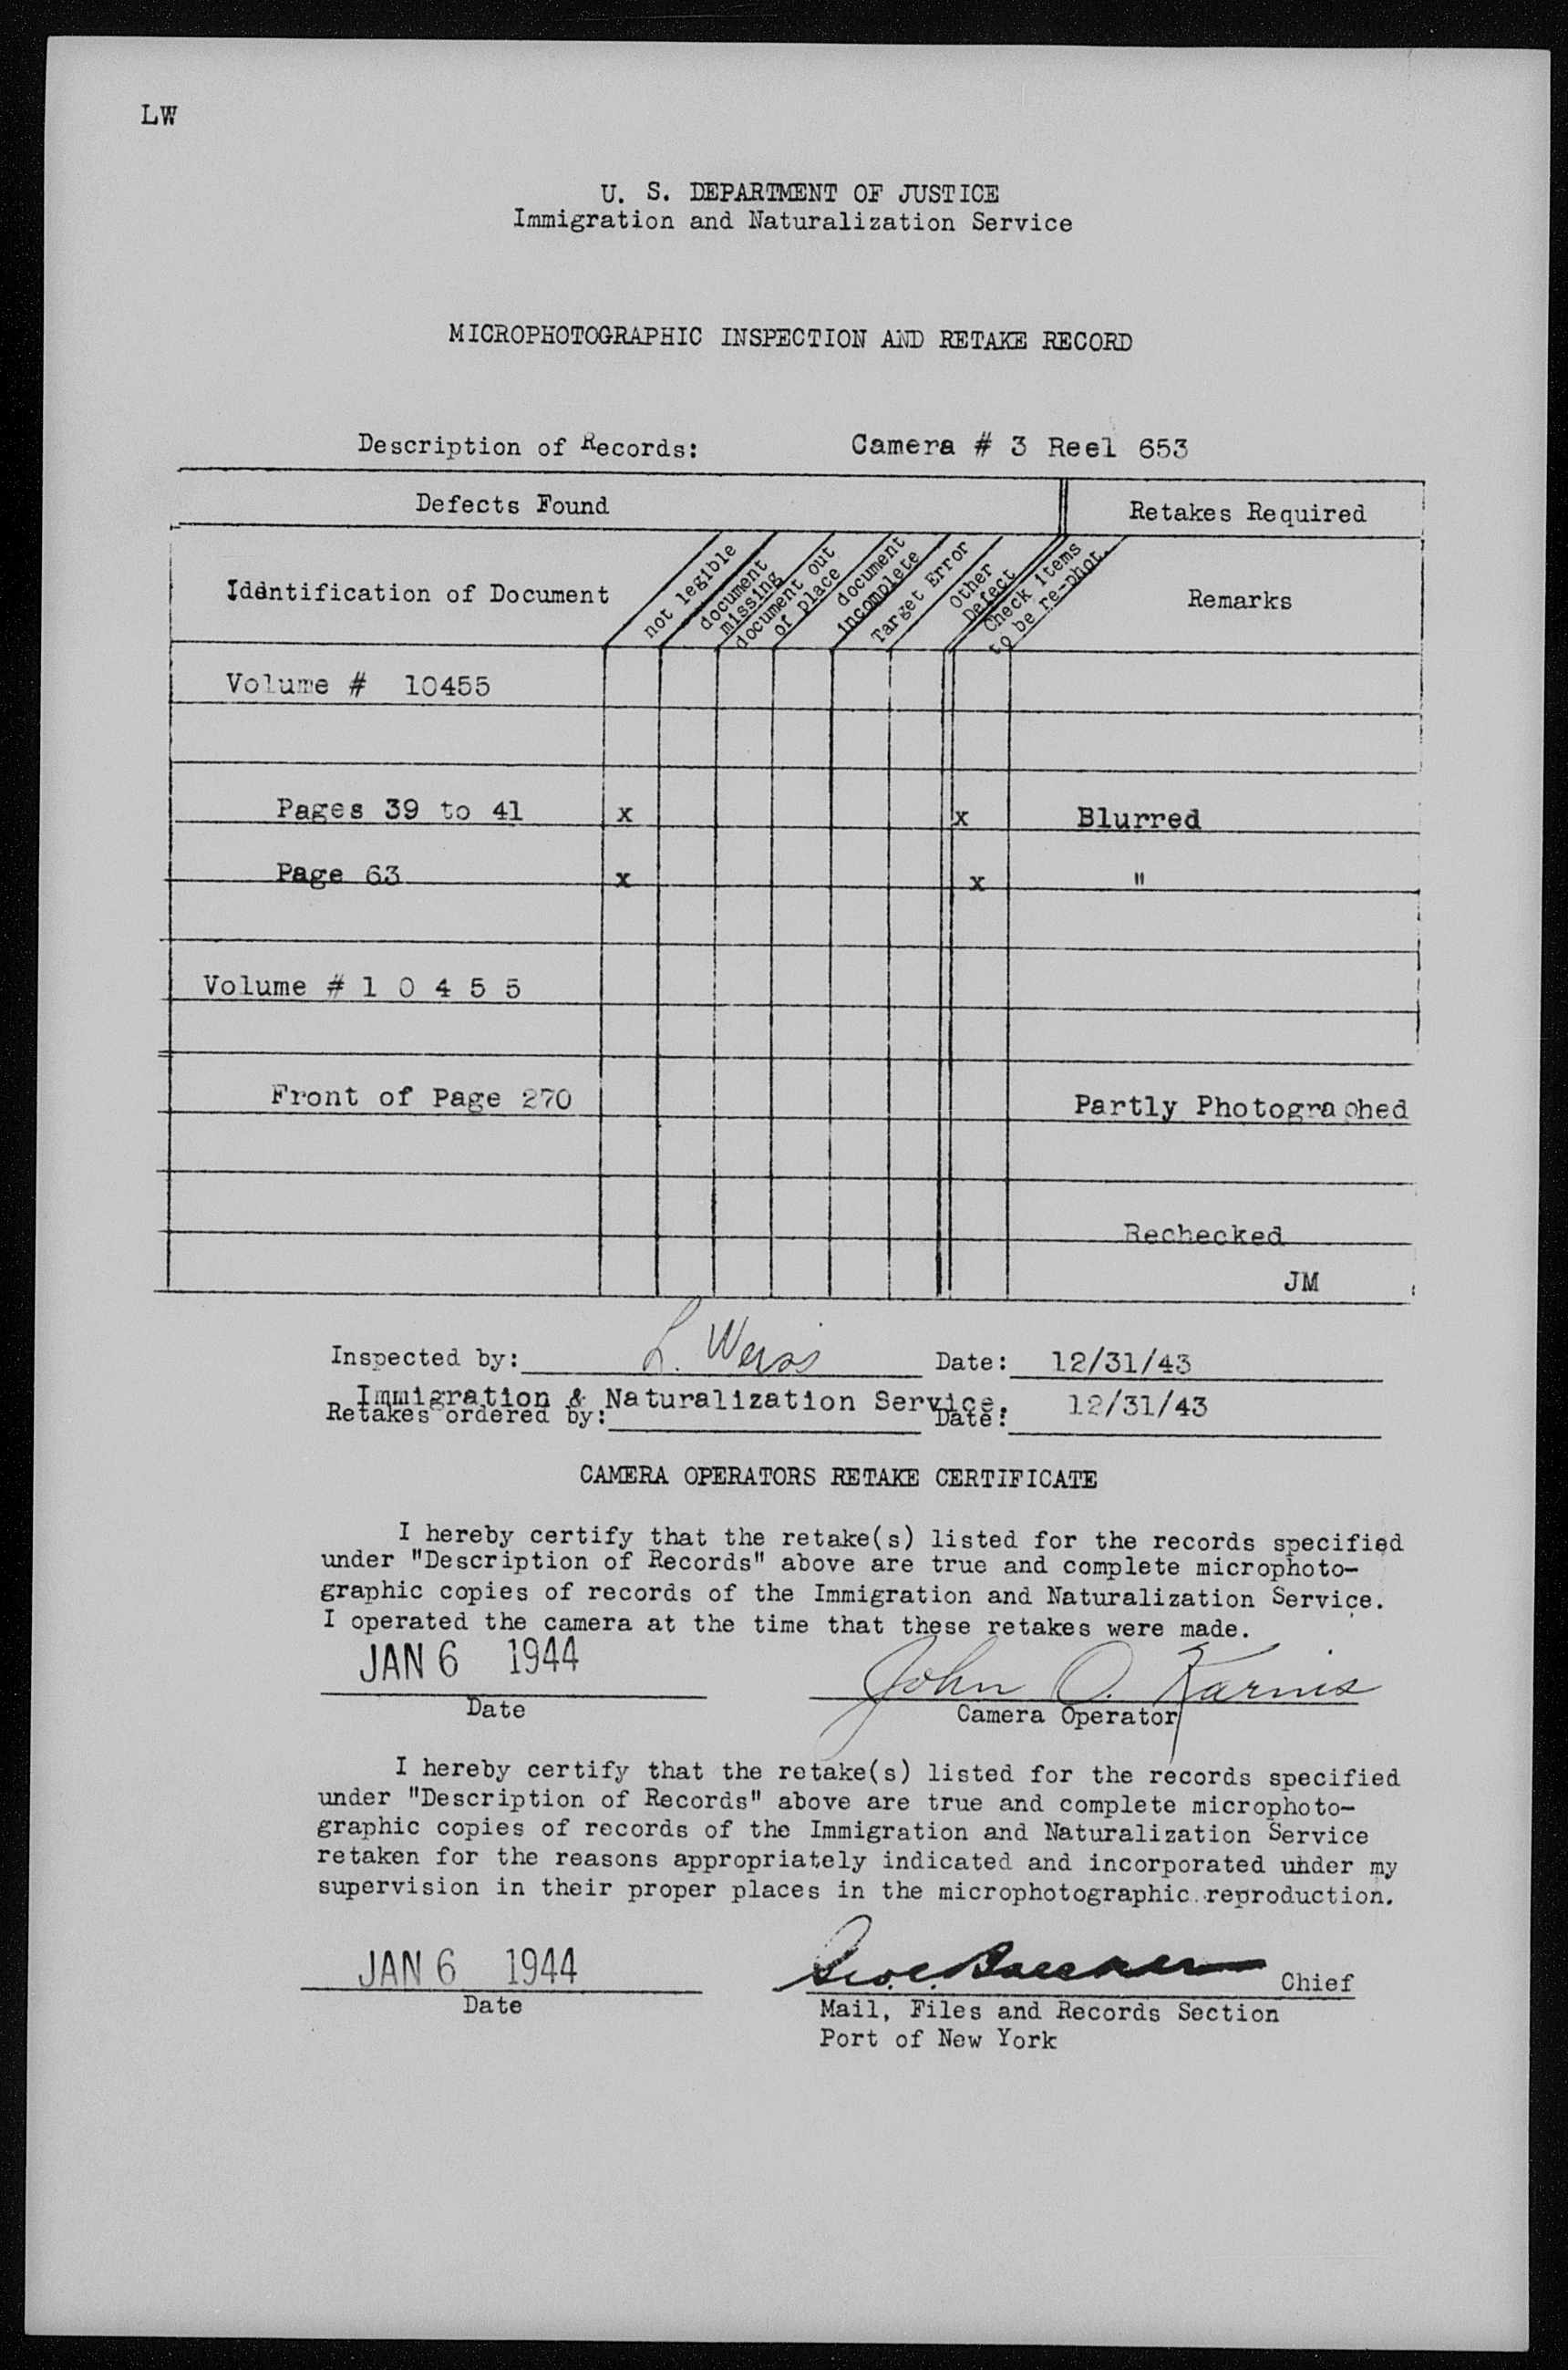 LW
U. S. DEPARTMENT OF JUSTICE
Immigration and Naturalization Service
MICROPHOTOGRAPHIC INSPECTION AND RETAKE RECORD
Description of Records: Camera # 3 Reel 653
Defects Found Retakes Required
Identification of Document
not legible
document
missing
document out
of place
document
incomplete
Target Error
Other
Defect
Check items
to be re-phot.
Remarks
Volume # 10455
Pages 39 to 41 x x Blurred
Page 63 x x "
Volume # 1 0 4 5 5
Front of Page 270 Partly Photographed
Rechecked
JM
Inspected by: L. Weiss Date: 12/31/43
Immigration & Naturalization Service. 12/31/43
Retakes ordered by: Date:
CAMERA OPERATORS RETAKE CERTIFICATE
I hereby certify that the retake(s) listed for the records specified
under "Description of Records" above are true and complete microphoto-
graphic copies of records of the Immigration and Naturalization Service.
I operated the camera at the time that these retakes were made.
JAN 6 1944 John O. Karnis
Date Camera Operator
I hereby certify that the retake(s) listed for the records specified
under "Description of Records" above are true and complete microphoto-
graphic copies of records of the Immigration and Naturalization Service
retaken for the reasons appropriately indicated and incorporated under my
supervision in their proper places in the microphotographic reproduction.
JAN 6 1944 Chief
Date Mail, Files and Records Section
Port of New York